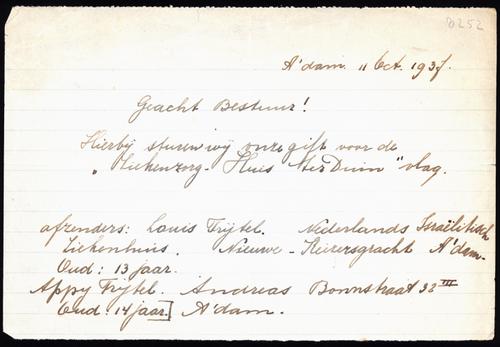 80252
A'dam. 11 Oct. 1937.
Geacht Bestuur!
Hierbij sturen wij onze gift voor de
"Ziekenzorg - Huis Ter Duin" vlag.
afzenders: Louis Frijtel. Nederlands Israëlitisch
Ziekenhuis. Nieuwe - Keizersgracht A'dam.
Oud: 13 jaar.
Appy Frijtel. Andreas Bonnstraat 32 III
Oud: 14 jaar.] A'dam.